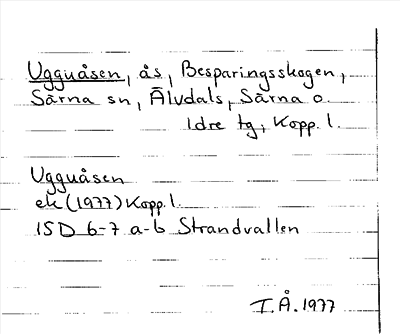 Ugguåsen, ås, Besparingsskogen,
Särna sn, Älvdals, Särna o.
Idre tg, Kopp. l.
Ugguåsen
ek (1977) Kopp. l.
15D 6-7 a-b Strandvallen
T.Å. 1977